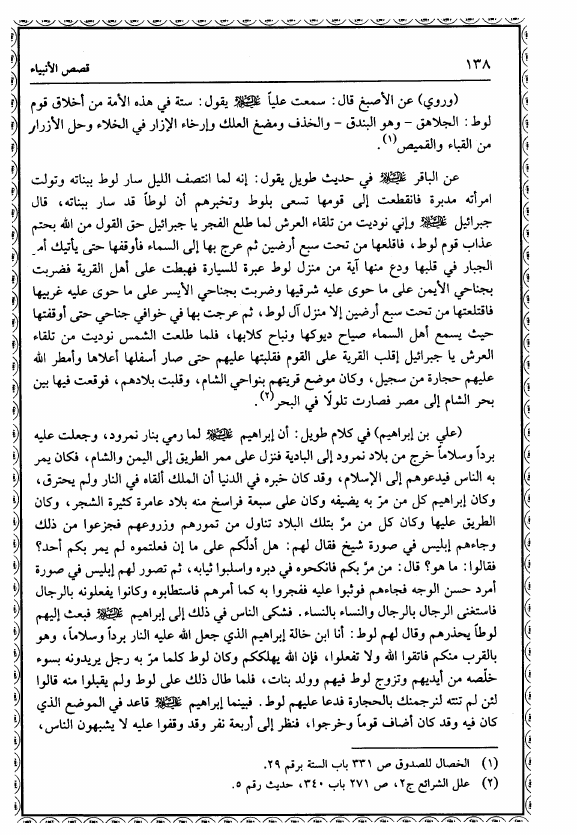 ١٣٨
قصص الأنبياء
(وروي) عن الأصبغ قال: سمعت علياً عليه السلام يقول: ستة في هذه الأمة من أخلاق قوم
لوط: الجلاهق - وهو البندق - والخذف ومضغ العلك وإرخاء الإزار في الخلاء وحل الأزرار
من القباء والقميص(١).
عن الباقر عليه السلام في حديث طويل يقول: إنه لما انتصف الليل سار لوط ببناته وتولت
امرأته مدبرة فانقطعت إلى قومها تسعى بلوط وتخبرهم أن لوطاً قد سار ببناته، قال
جبرائيل عليه السلام وإني نوديت من تلقاء العرش لما طلع الفجر يا جبرائيل حق القول من الله بحتم
عذاب قوم لوط، فاقلعها من تحت سبع أرضين ثم عرج بها إلى السماء فأوقفها حتى يأتيك أمر
الجبار في قلبها ودع منها آية من منزل لوط عبرة للسيارة فهبطت على أهل القرية فضربت
بجناحي الأيمن على ما حوى عليه شرقيها وضربت بجناحي الأيسر على ما حوى عليه غربيها
فاقتلعتها من تحت سبع أرضين إلا منزل آل لوط، ثم عرجت بها في خوافي جناحي حتى أوقفتها
حيث يسمع أهل السماء صياح ديوكها ونباح كلابها، فلما طلعت الشمس نوديت من تلقاء
العرش يا جبرائيل إقلب القرية على القوم فقلبتها عليهم حتى صار أسفلها أعلاها وأمطر الله
عليهم حجارة من سجيل، وكان موضع قريتهم بنواحي الشام، وقلبت بلادهم، فوقعت فيها بين
بحر الشام إلى مصر فصارت تلولًا في البحر(٢).
(علي بن إبراهيم) في كلام طويل: أن إبراهيم عليه السلام لما رمي بنار نمرود، وجعلت عليه
برداً وسلاماً خرج من بلاد نمرود إلى البادية فنزل على ممر الطريق إلى اليمن والشام، فكان يمر
به الناس فيدعوهم إلى الإسلام، وقد كان خبره في الدنيا أن الملك ألقاه في النار ولم يحترق،
وكان إبراهيم كل من مرّ به يضيفه وكان على سبعة فراسخ منه بلاد عامرة كثيرة الشجر، وكان
الطريق عليها وكان كل من مرّ بتلك البلاد تناول من تمورهم وزروعهم فجزعوا من ذلك
وجاءهم إبليس في صورة شيخ فقال لهم: هل أدلّكم على ما إن فعلتموه لم يمر بكم أحد؟
فقالوا: ما هو؟ قال: من مرّ بكم فانكحوه في دبره واسلبوا ثيابه، ثم تصور لهم إبليس في صورة
أمرد حسن الوجه فجاءهم فوثبوا عليه ففجروا به كما أمرهم فاستطابوه وكانوا يفعلونه بالرجال
فاستغنى الرجال بالرجال والنساء بالنساء. فشكى الناس في ذلك إلى إبراهيم عليه السلام فبعث إليهم
لوطاً يحذرهم وقال لهم لوط: أنا ابن خالة إبراهيم الذي جعل الله عليه النار برداً وسلاماً، وهو
بالقرب منكم فاتقوا الله ولا تفعلوا، فإن الله يهلككم وكان لوط كلما مرّ به رجل يريدونه بسوء
خلّصه من أيديهم وتزوج لوط فيهم وولد بنات، فلما طال ذلك على لوط ولم يقبلوا منه قالوا
لئن لم تنته لنرجمنك بالحجارة فدعا عليهم لوط. فبينما إبراهيم عليه السلام قاعد في الموضع الذي
كان فيه وقد كان أضاف قوماً وخرجوا، فنظر إلى أربعة نفر وقد وقفوا عليه لا يشبهون الناس،
(١) الخصال للصدوق ص ٣٣١ باب الستة برقم ٢٩.
(٢) علل الشرائع ج٢، ص ٢٧١ باب ٣٤٠، حديث رقم ٥.